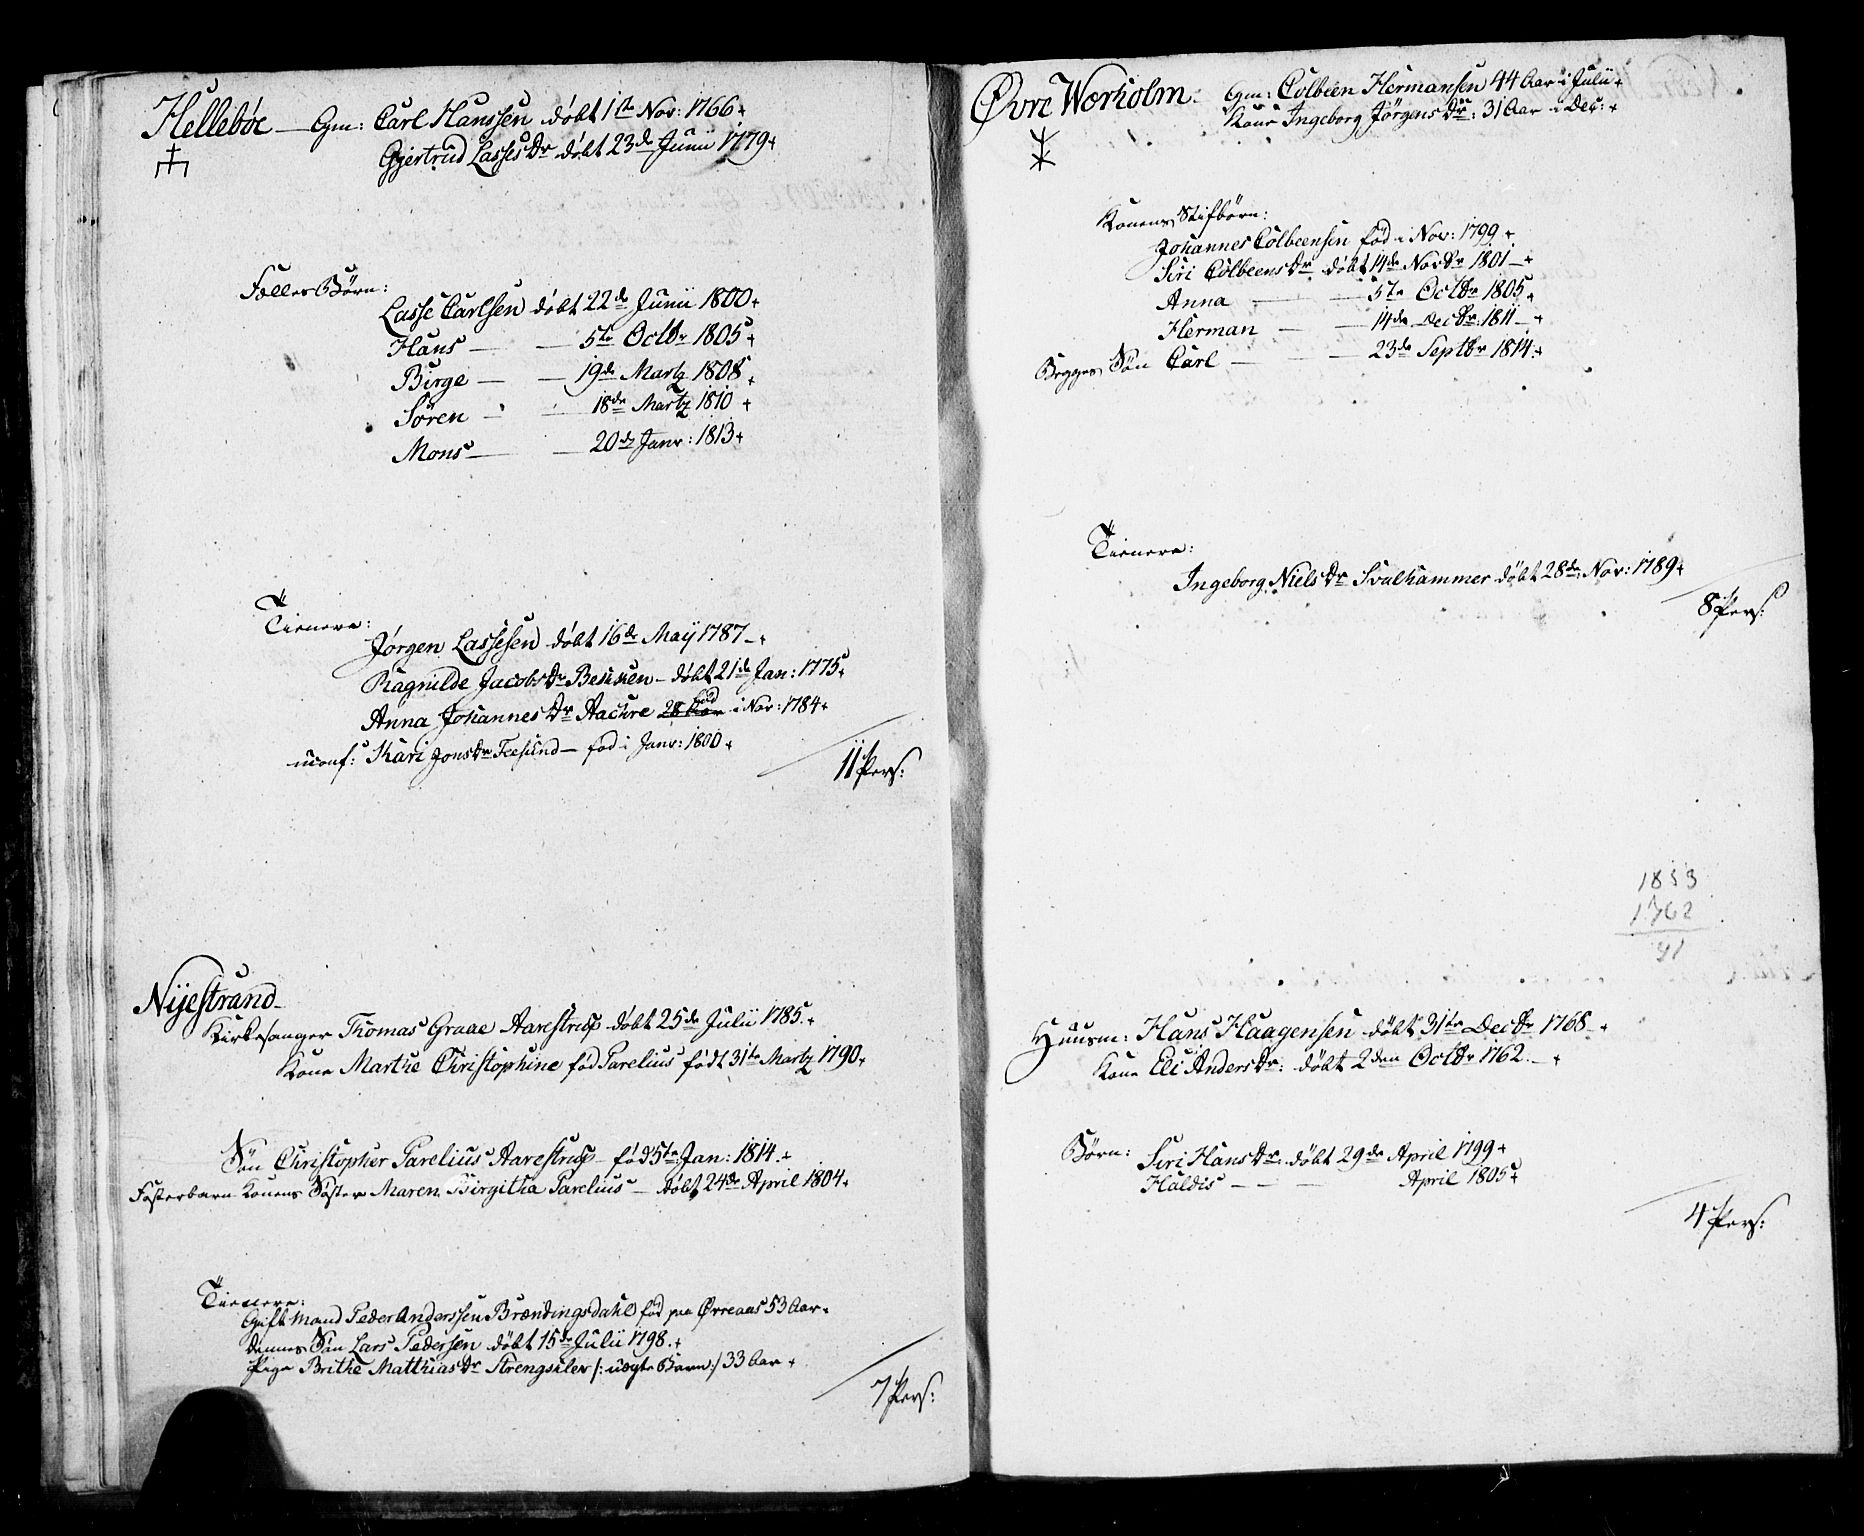 Helleböe — Gm: Carl Hanssen döbt 1ste Nov: 1766 +
Gjertrud LassesDr döbt 23de Junii 1779 +
Fælles Börn:
Lasse Carlsen döbt 22de Junii 1800 +
Hans — — 5te Octbr 1805 +
Birge — — 19de Martz 1808 +
Sören — — 18de Martz 1810 +
Mons — — 20de Janr: 1813 +
Tienere:
Jörgen Lassesen döbt 16de May 1787 — +
Ragnilde JacobsDr — döbt 21de Jan: 1775 +
Anna JohannesDr Aachre 28 Aar föd i Nov: 1784 +
uconf: Kari JonsDr Teesund — föd i Janr: 1800 +
11 Pers:
Nijestrand —
Kirkesanger Thomas Graae Aarestrup döbt 25de Julii 1785 +
Kone Marthe Christophine föd Parelius født 31te Martz 1790 +
Sön Christopher Parelius Aarestrup — föd 5te Jan: 1814 +
Fosterbarn Konens Söster Maren Birgitha Parelius — döbt 24de April 1804 +
Tienere:
Gift Mand Peder Anderssen Brændingsdahl föd paa Örreaas 53 Aar +
dennes Sön Lars Pedersen döbt 15de Julii 1798 +
Pige Brithe MatthiasDr Strengselev /: uægte Barn :/ 33 Aar +
7 Pers:
Övre Wærholm. Gm: Colbeen Hermansen 44 Aar i Julii +
Kone Ingeborg JörgensDr: 31 Aar i Dec: +
Konens Stifbörn:
Johannes Colbeensen föd i Nov: 1799 +
Siri ColbeensDr döbt 14de Novbr 1801 — +
Anna — — 5te Octbr 1805 +
Herman — — 14de Decbr 1811 — +
Begges Sön Carl — — 23de Septbr 1814 +
Tienere:
Ingeborg NielsDr Svalhammer döbt 28de Nov: 1789 +
8 Pers:
1853
1762
91
Huusm: Hans Haagensen döbt 31te Decbr 1768 — +
Kone Eli AndersDr: döbt 2den Octbr 1762 — +
Börn: Siri HansDr: döbt 29de April 1799 +
Haldis — — April 1805 +
4 Pers: